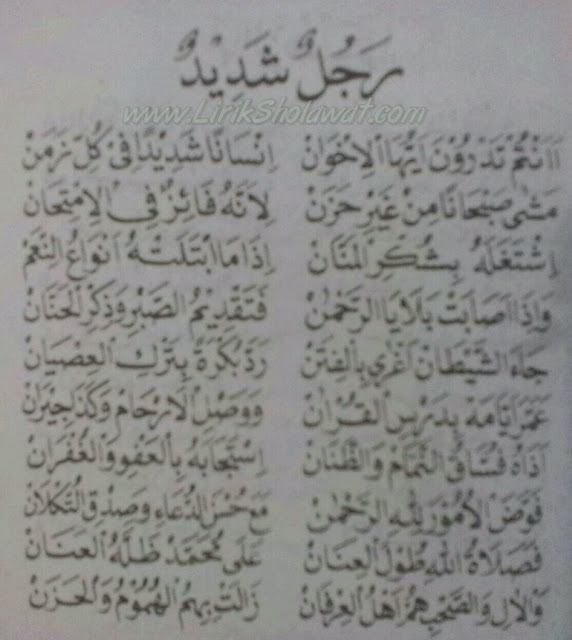 رَجُلٌ شَدِيْدٌ
www.LirikSholawat.com
أَأَنْتُمْ تَدْرُوْنَ اَيُّهَا الْاِخْوَانْ اِنْسَانًا شَدِيْدًا فِيْ كُلِّ زَمَنْ
مَشٰى صَبْحَانًا مِنْ غَيْرِ حَزَنْ لِاَنَّهُ فَائِزٌ فِي الْاِمْتِحَانْ
اِشْتَغَلَهُ بِشُكْرِ الْمَنَّانْ اِذَا مَا ابْتَلَتْهُ اَنْوَاعُ النِّعَمْ
وَاِذَا اَصَابَتْ بَلَايَا الرَّحْمٰنْ فَتَقْدِيْمُ الصَّبْرِ وَذِكْرِ الْحَنَّانْ
جَاءَ الشَّيْطَانْ اَغْرٰي بِالْفِتَنْ رَدَّ بُكْرَةً بِتَرْكِ الْعِصْيَانْ
عَمَّرَ اَيَّامَهْ بِدَرْسِ الْقُرْاٰنْ وَوَصْلِ الْاَرْحَامْ وَكَذَا جِيْرَانْ
اَذَاهُ فُسَّاقُ النَّمَّامْ وَالظَّنَّانْ اِسْتَجَابَهُ بِالْعَفْوِ وَالْغُفْرَانْ
فَوَّضَ الْاُمُوْرَ لِلّٰهِ الرَّحْمٰنْ مَعْ حُسْنِ الدُّعَاءِ وَصِدْقِ التُّكْلَانْ
فَصَلَاةُ اللهِ طُوْلَ الْعِنَانْ عَلٰى مُحَمَّدْ ظَلَّهُ الْعَنَانْ
وَالْاٰلِ وَالصَّحْبِ هُمْ اَهْلُ الْعِرْفَانْ زَالَتْ بِهِمُ الْهُمُوْمُ وَالْحَزَنْ